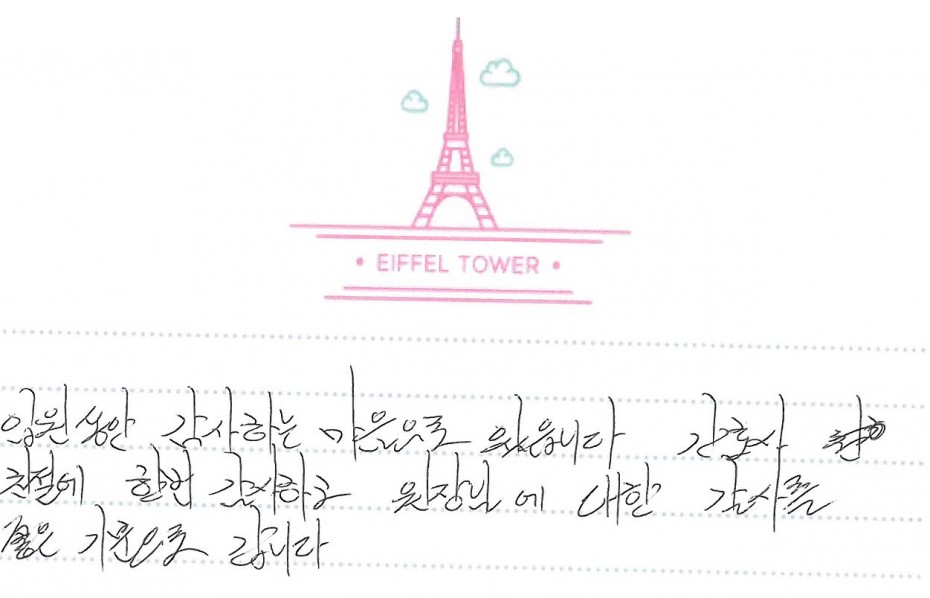 • EIFFEL TOWER •
입원 상안 감사하는 마음으로 있읍니다 간호사
친절에 한번 감사하고 원장님에 대한 감사를
좋은 기분으로 갑니다